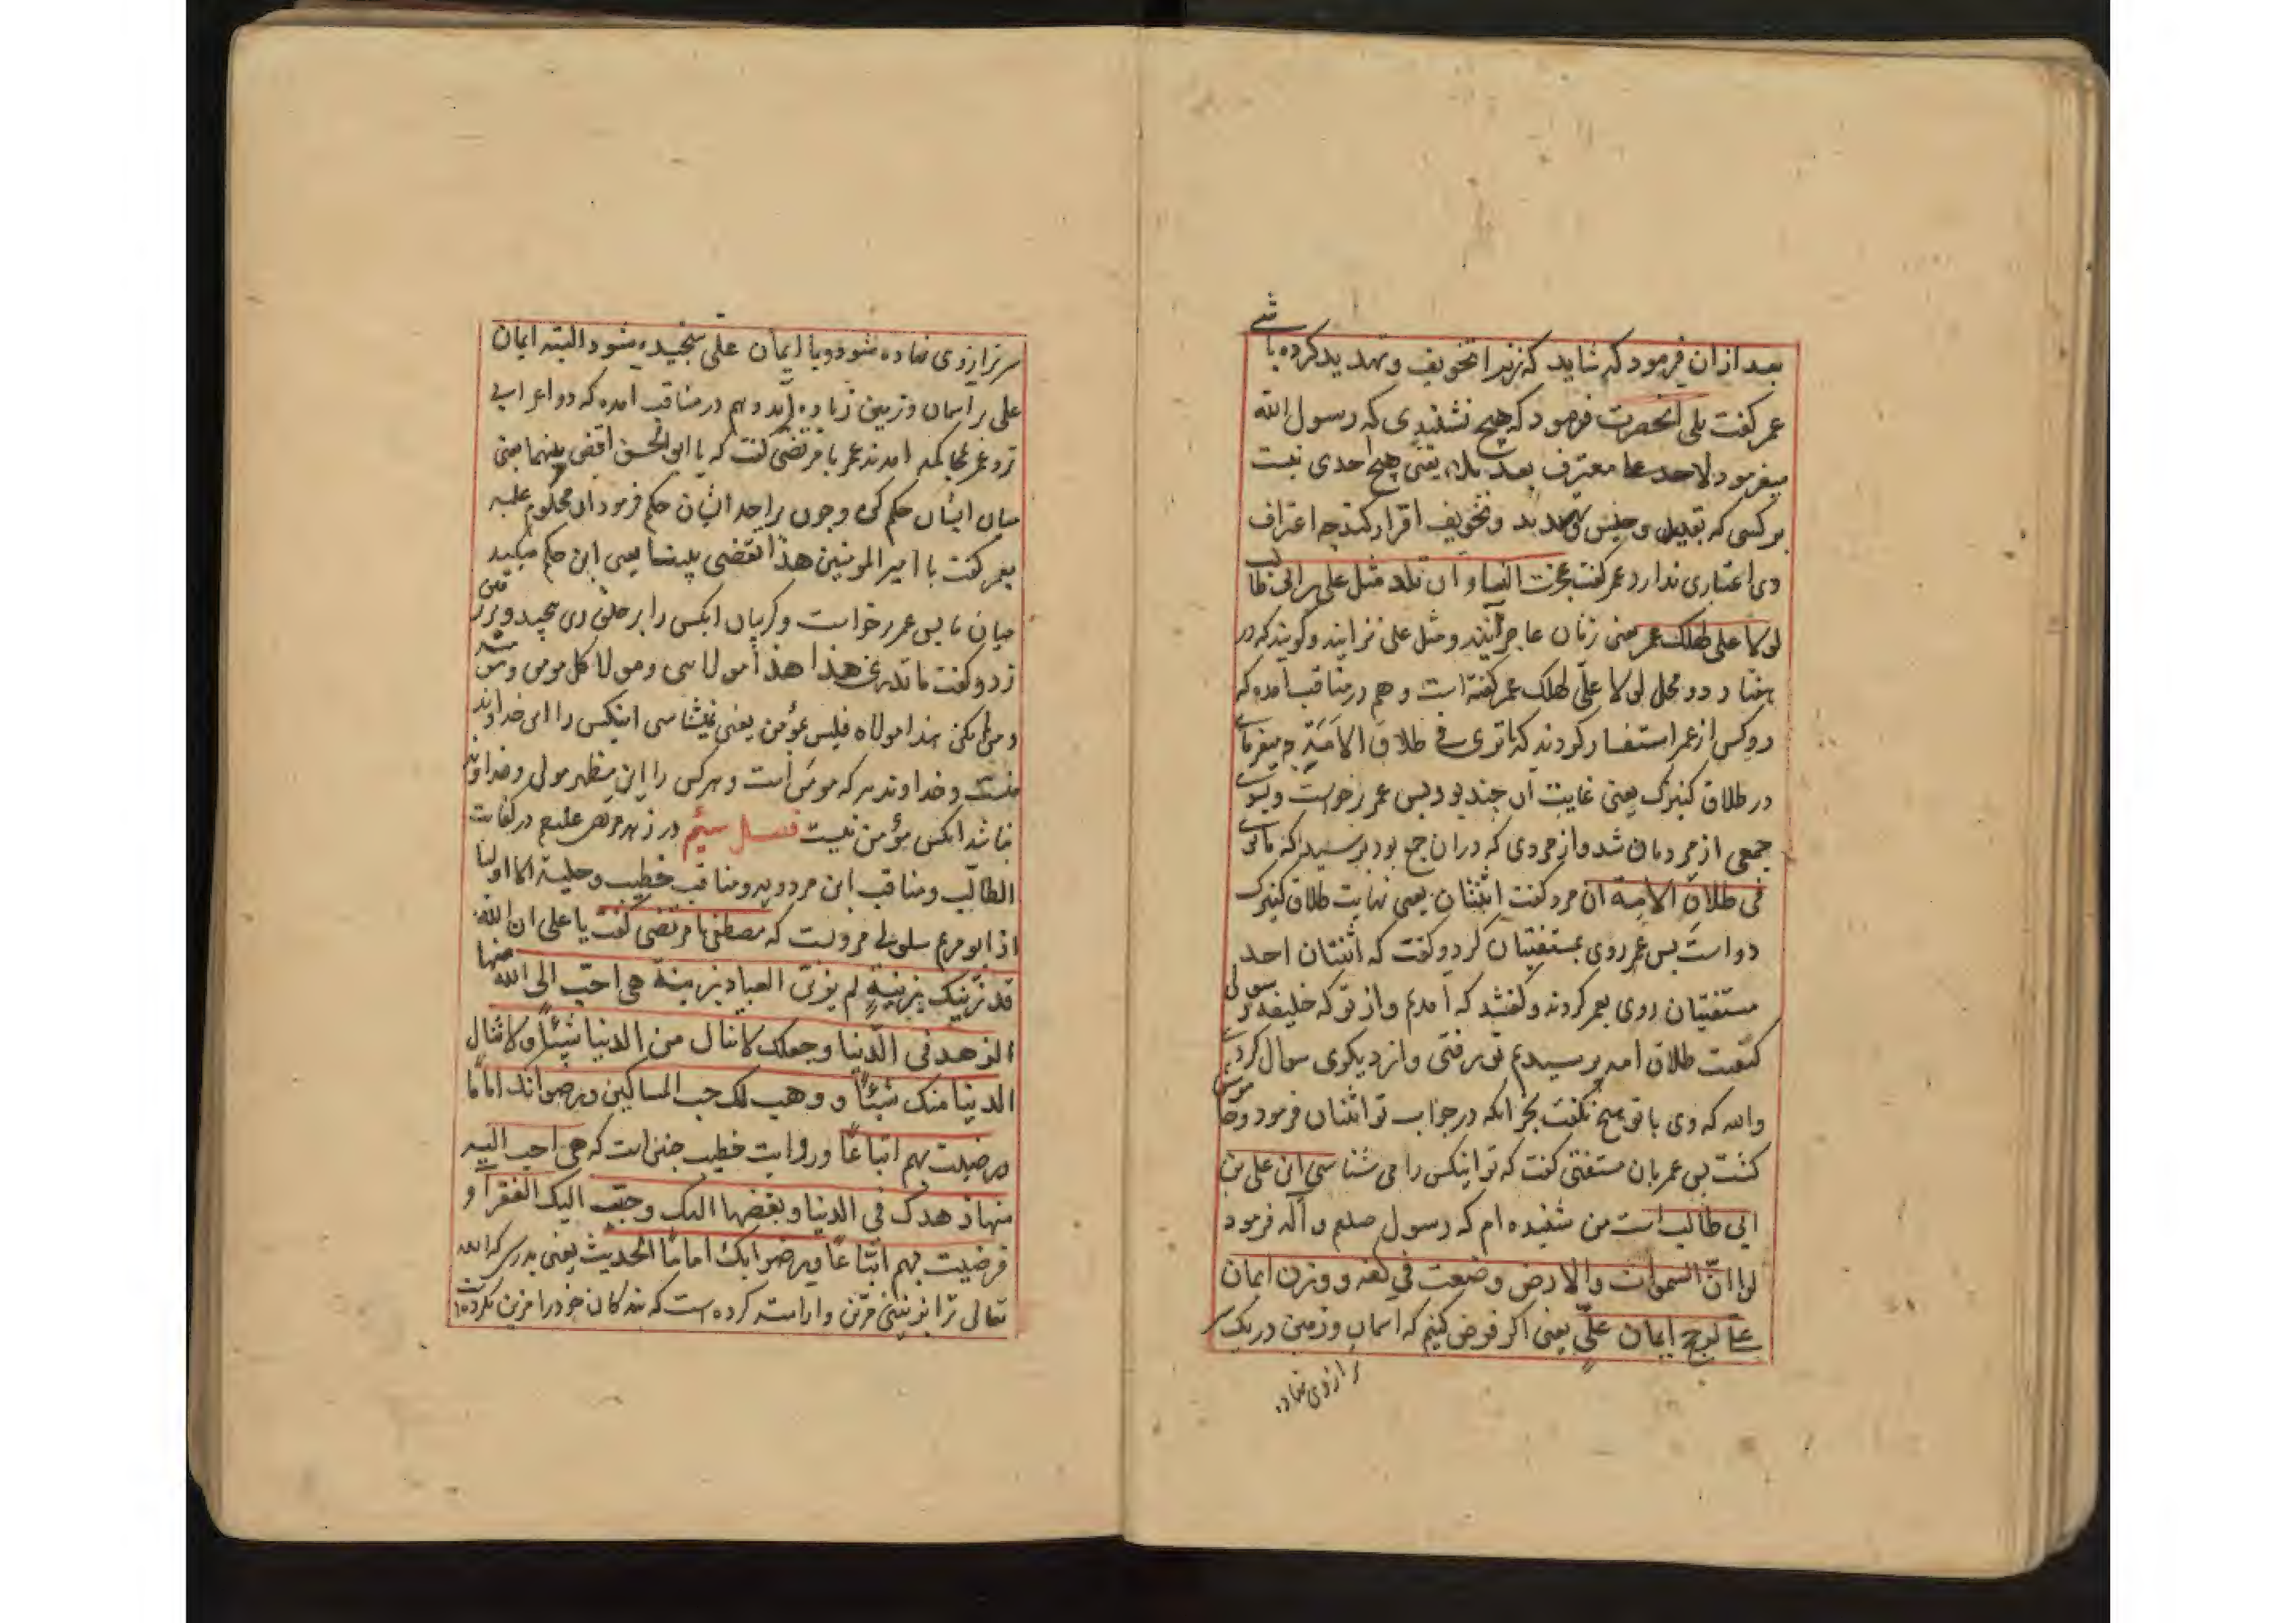 بعد از ان فرمود که شاید که زنرا تخویف و تهدید کرده باشی
عمر کفت بلی انحضرت فرمود که هیچ نشنیدی که رسول الله
میفرمود لاحد علی معترف بعد بلاء یعنی هیچ احدی نیست
بر کسی که و حبس و تهدید و تخویف اقرار کند چه اعتراف
وی اعتباری ندارد عمر کفت عجزت النساء ان تلد مثل علی بن ابی طالب
لولا علی لهلک عمر یعنی زنان عاجز آیند و مثل علی نزایند و کویند که در
هفتاد و دو محل لولا علی لهلک عمر کفته است و هم در مناقب آمده که
دو کس از عمر استفسار کردند که ما تری فی طلاق الامة چه میفرمای
در طلاق کنیزک یعنی غایت آن چند بود پس عمر برخواست و بسوی
جمعی از مردمان شد و از مردی که در ان جمع بود پرسید که ما تری
فی طلاق الامة ان مرد کفت اثنتان یعنی نهایت طلاق کنیزک
دو است پس عمر روی بمستفتیان کرد و کفت که اثنتان احد
مستفتیان روی بعمر کردند و کفتند که آمدیم و از تو که خلیفه رسولی
کیفیت طلاق امه پرسیدیم تو برفتی و از دیکری سوال کردی
والله که وی با تو هیچ نکفت بجز انکه در جواب تو اثنتان فرمود و خاموش
کشت پس عمر بان مستفتی کفت که تو اینکس را می شناسی این علی بن
ابی طالب است من شنیده ام که رسول صلعم و آله فرمود
لو ان السموات والارض وضعت فی کفه و وزن ایمان
علی لرجح ایمان علی یعنی اکر فرض کنیم که اسمان و زمین در یک سر
ترازوی نهاده
سر ترازوی نهاده شود و با ایمان علی سنجیده شود البته ایمان
علی بر اسمان و زمین زیاده آید و هم در مناقب امده که دو اعرابی
نزد عمر بمحاکمه امدند عمر با مرتضی کفت که یا ابوالحسن اقض بینهما یعنی
میان ایشان حکم کن و چون بر احد ایشان حکم فرمود ان محکوم علیه
بعمر کفت یا امیر المومنین هذا یقضی بیننا یعنی این حکم میکند
میان ما پس عمر برخواست و کریبان انکس را بر حلق وی پیچید و بر
زد و کفت ما تدری من هذا هذا مولای و مولا کل مومن
و من لم یکن هذا مولاه فلیس بمؤمن یعنی نمیشناسی اینکس را این خداوند
منست و خداوند هر که مومن است و هر کس را این مظهر مولی و خداوند
نباشد انکس مؤمن نیست فصل سیم در زهد مرتضی علیه در کفایت
الطالب و مناقب ابن مردویه و مناقب خطیب و حلیة الاولیا
از ابو مریم سلولی مرویست که مصطفی با مرتضی کفت یا علی ان الله
قد زینک بزینة لم یزین العباد بزینة هی احب الی الله منها
الزهد فی الدنیا و جعلک لا تنال من الدنیا شیئا و لا تنال
الدنیا منک شیئا و وهب لک حب المساکین و رضوا بک اماما
و رضیت بهم اتباعا و روایت خطیب چنین است که هی احب الیه
منها زهدک فی الدنیا و بغضها الیک و حبب الیک الفقراء و
فرضیت بهم اتباعا و رضوا بک اماما الحدیث یعنی بدرستی که الله
تعالی ترا بزینتی مزین و اراسته کرده است که بندکان خود را مزین نکرده است